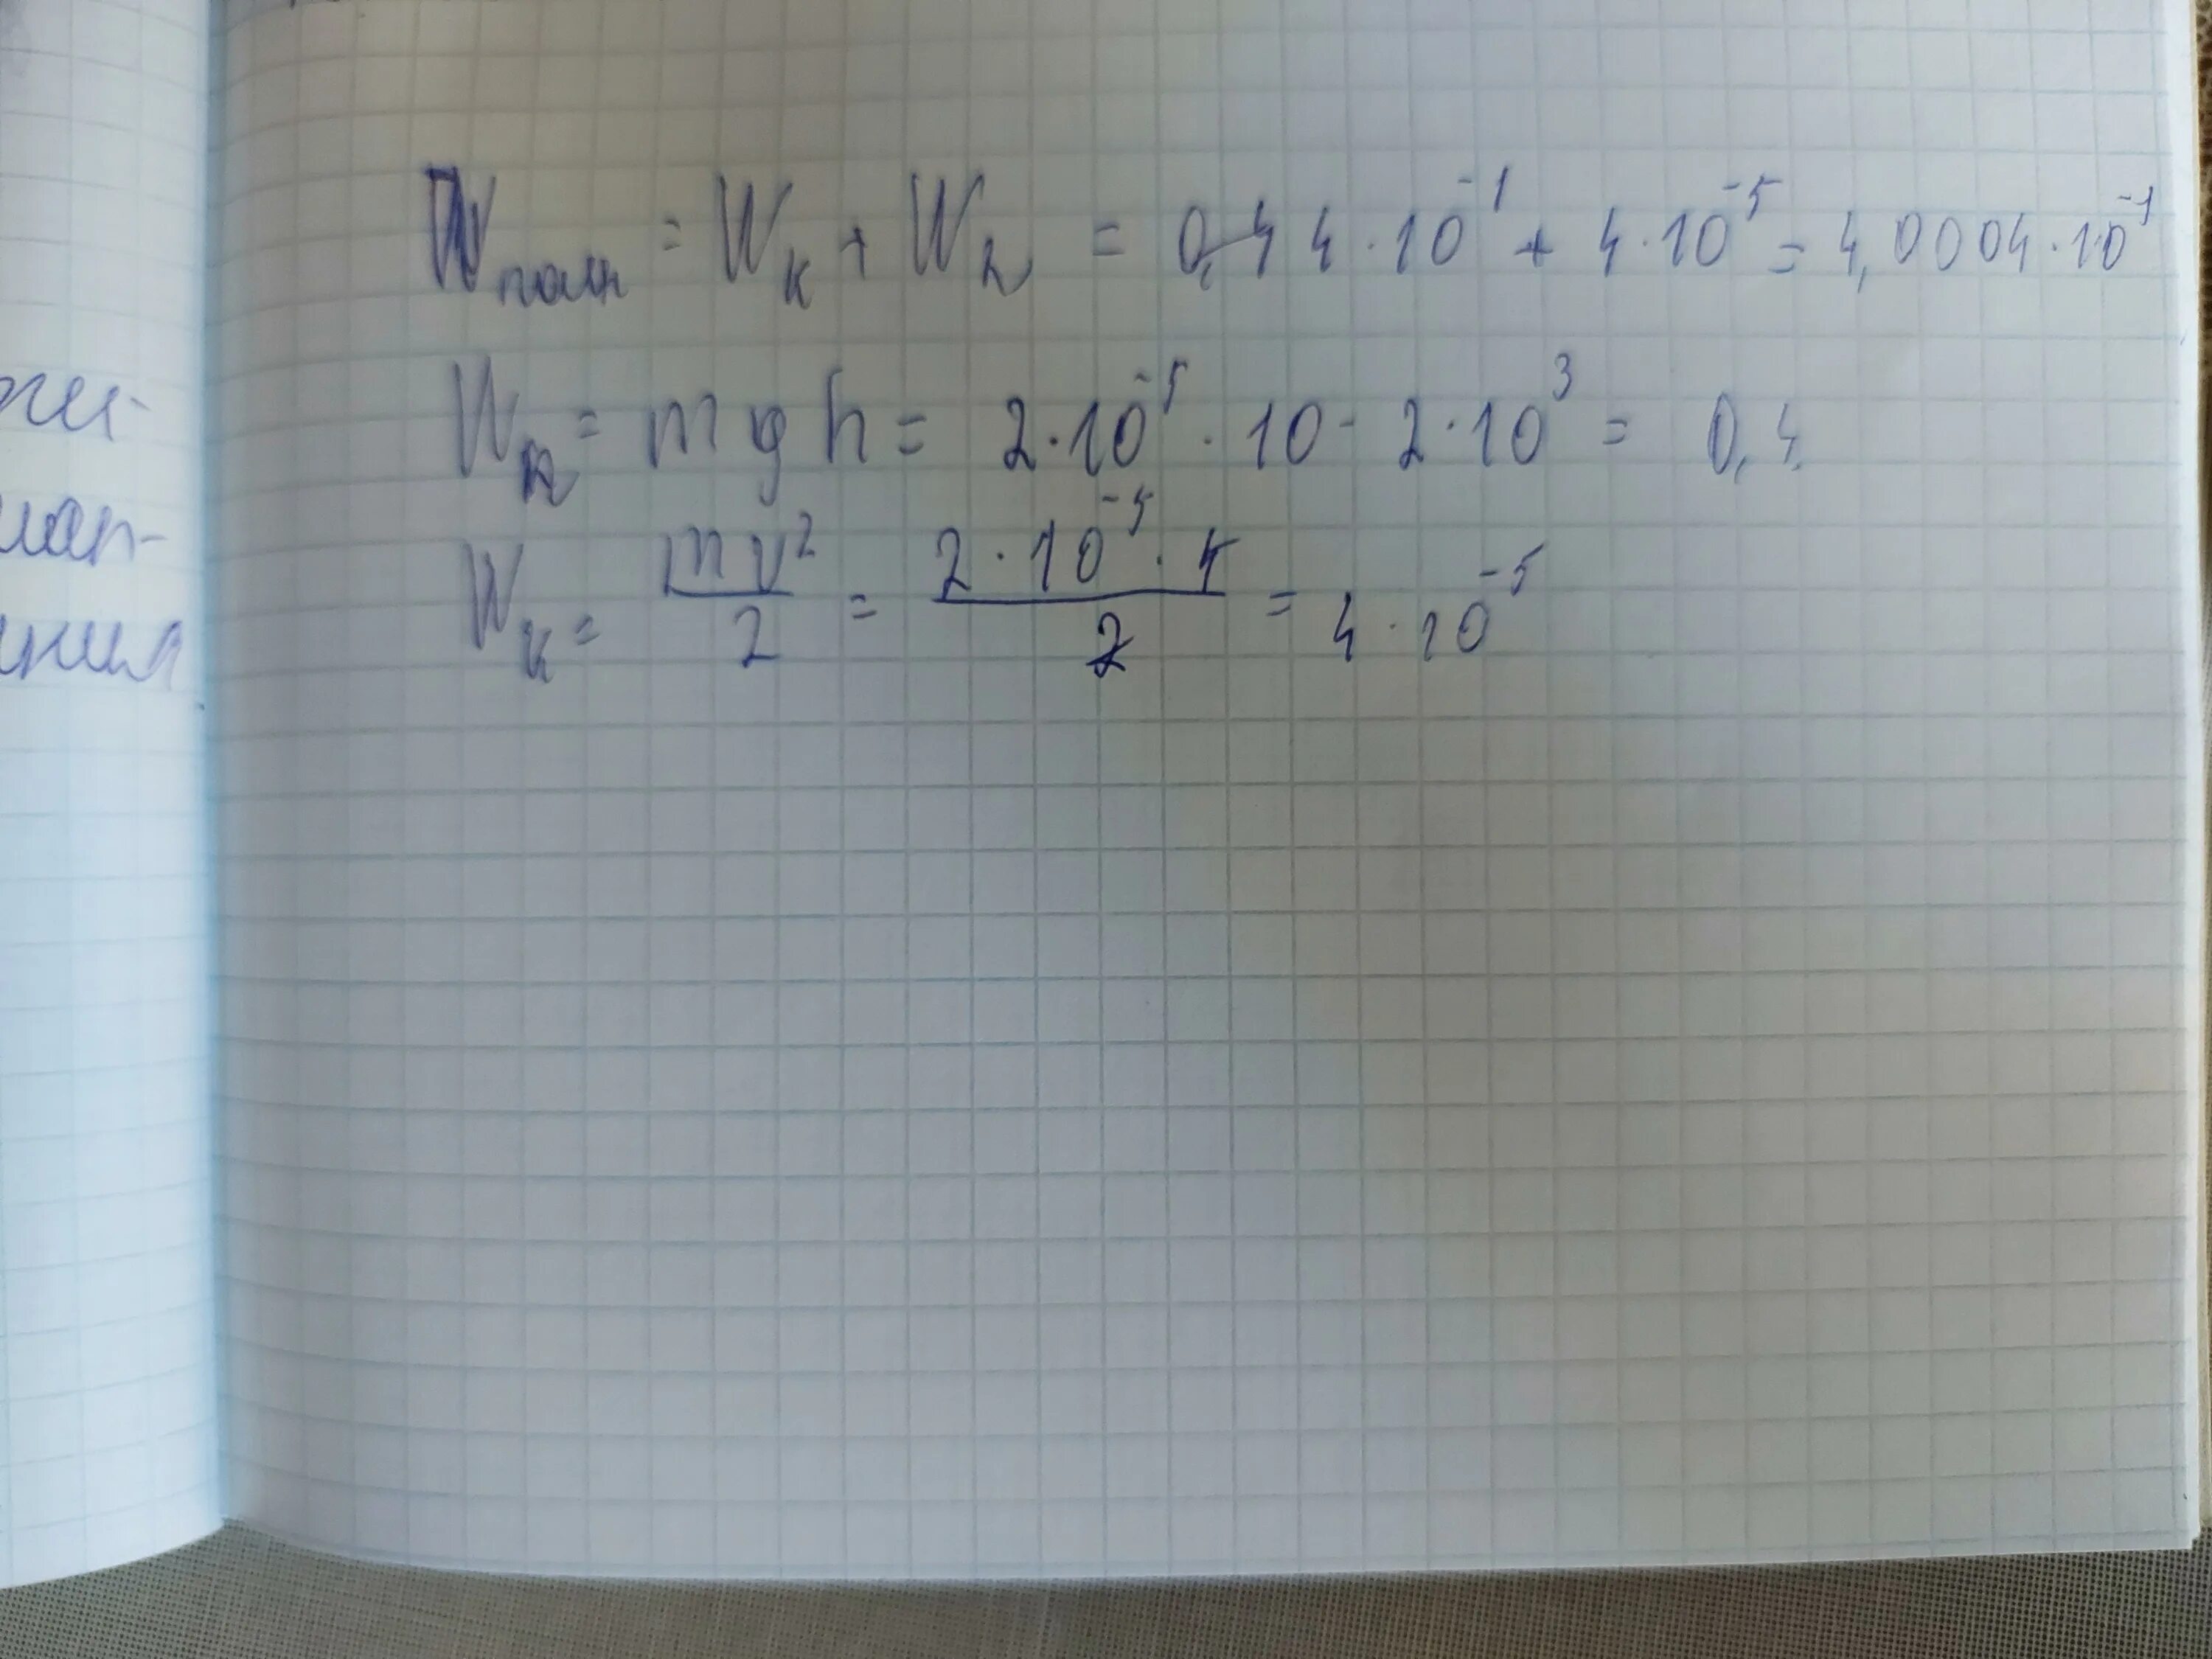 жи-
W_полн = W_k + W_п = 4·10^-1 + 4·10^-5 = 4,0004·10^-1
W_п = mgh = 2·10^-5 · 10 · 2·10^3 = 0,4
W_k = mv^2/2 = 2·10^-5·4/2 = 4·10^-5
ния